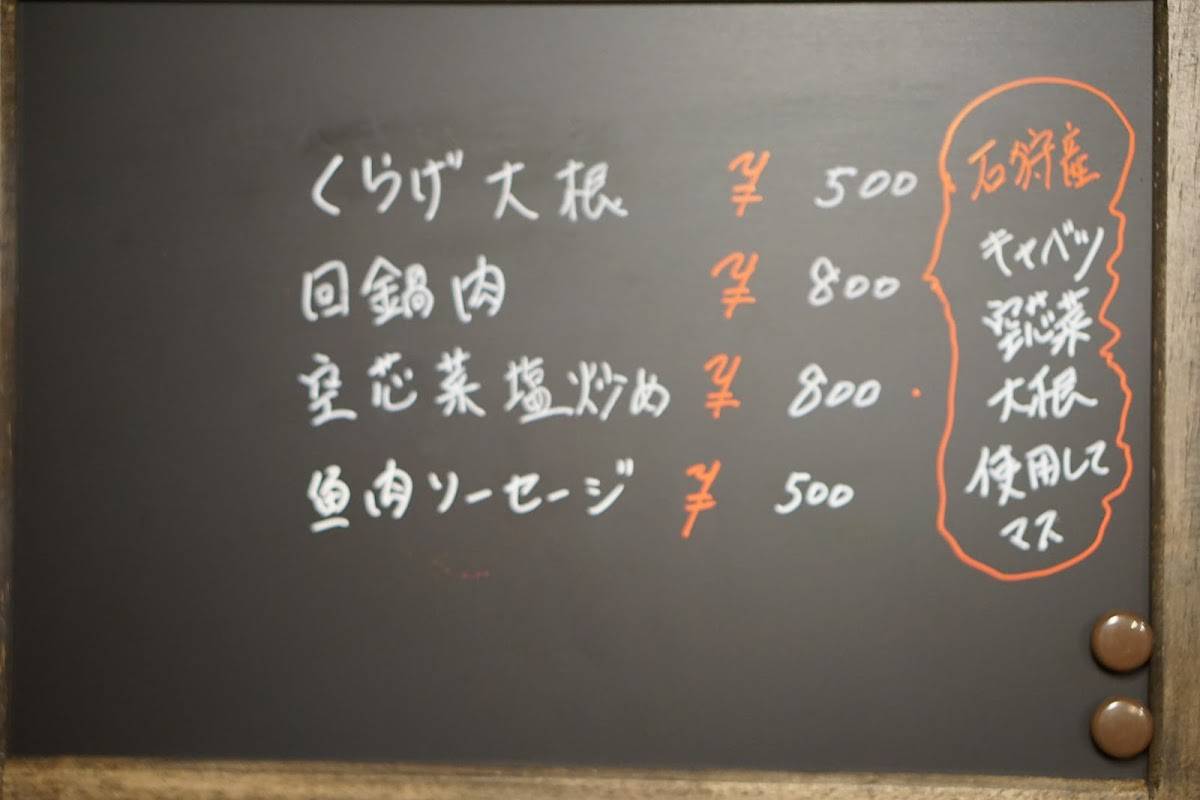 くらげ大根 ¥ 500
回鍋肉 ¥ 800
空芯菜塩炒め ¥ 800
魚肉ソーセージ ¥ 500
石狩産
キャベツ
空芯菜
大根
使用して
マス